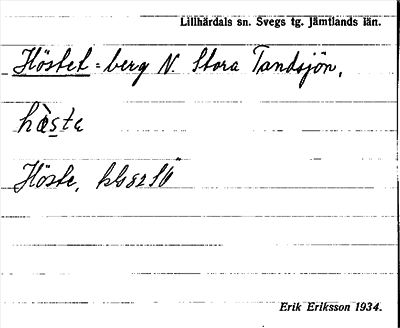 Lillhärdals sn. Svegs tg. Jämtlands län.
Höstet = berg N. Stora Tandsjön.
Höste,
Erik Eriksson 1934.